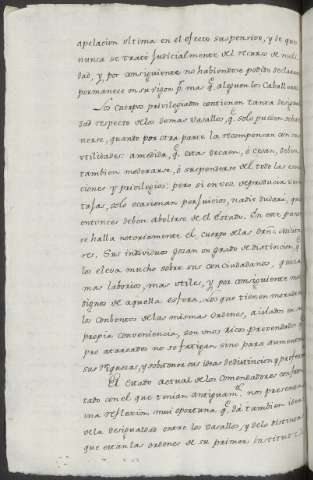 apelacion ultima en el efecto suspensivo, y de que
nunca se trató judicialmente del recurso de nuli
dad, y por consiguiente no habiendose podido declarar
permanece en su vigor p.ª mas q.ᵉ aleguen los Caballeros
Los Cuerpos privilegiados contienen tanta desigual
dad respecto de los demas vasallos, q.ᵉ solo pueden soste
nerse, quanto por otra parte la recompensan con sus
utilidades: amedida, q.ᵉ estas decaen, ó cesan, deben
tambien moderarse, ó suspenderse del todo las exen
ciones y privilegios: pero si en vez de producir ven
tajas, solo ocasionan perjuicios, nadie dudará, que
entonces deben abolirse de el Estado. En este punto
se halla notoriamente el cuerpo de las Orñ.ˢ Milita
res. Sus individuos gozan un grado de distincion, q.ᵉ
los eleva mucho sobre sus conciudadanos, quizá
mas laborios, mas utiles, y por consiguiente mas
dignos de aquella esfera. Los que tienen
los conbentos de las mismas ordenes, aislados en su
propia conveniencia, son unos ricos prevendados q.ᵉ
por atareados no se fatigan sino para aumentar
sus riquezas, y sobstener sus ideas de distincion y prefer
El Estado actual de los Comendadores confron
tado con el que tenian antiguam.ᵗᵉ nos presenta
una reflexion mui oportuna q.ᵉ dá tambien idea
de la desigualdad entre los vasallos, y de lo distantes
que están las ordenes de su primer instituto